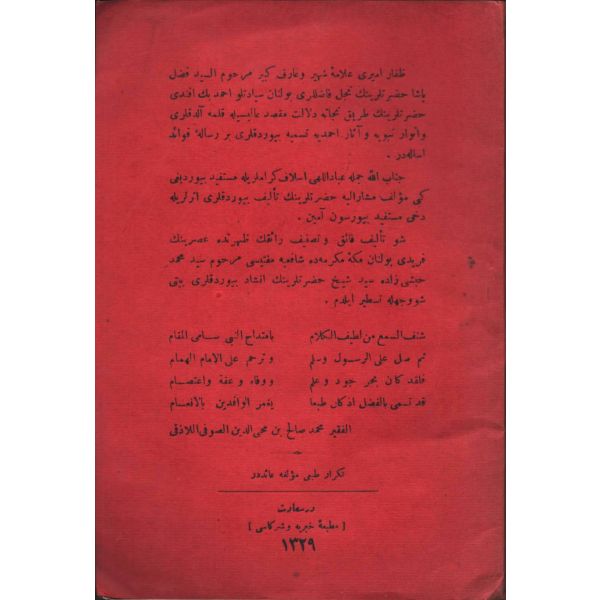 ظفار اميرى علامهٔ شهير وعارف كبير مرحوم السيد فضل
پاشا حضرتلرينك نجل فاضللرى بولنان سيادتلو احمد بك افندى
حضرتلرينك طريق نجاته دلالت مقصد عاليسيله قلمه آلدقلرى
وانوار نبويه و آثار احمديه تسميه بيوردقلرى بر رسالهٔ فوائد
اساله‌در .
جناب الله جمله عباداللهى اسلاف كراملريله مستفيد بيورديغى
كبى مؤلف مشاراليه حضرتلرينك تأليف بيوردقلرى اثرلريله
دخى مستفيد بيورسون آمين .
شو تأليف فائق و تصنيف رائقك ظهرنده عصرينك
فريدى بولنان مكهٔ مكرمه‌ده شافعيه مفتيسى مرحوم سيد محمد
حبشى زاده سيد شيخ حضرتلرينك انشاد بيوردقلرى بيتى
شووجهله تسطير ايلدم .
شنف السمع من لطيف الكلام بامتداح النبى سامى المقام
ثم صل على الرسول وسلم و ترحم على الامام الهمام
فلقد كان بحر جود و علم ووفاء و عفة واعتصام
قد تسمى بالفضل اذ كان طبعا يغمر الوافدين بالانعام
الفقير محمد صالح بن محى الدين الصوفى اللاذقى
تكرار طبعى مؤلفه عائددر
درسعادت
[ مطبعهٔ خيريه وشركاسى ]
١٣٢٩